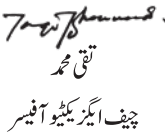 تقی محمد
چیف ایگزیکٹیو آفیسر